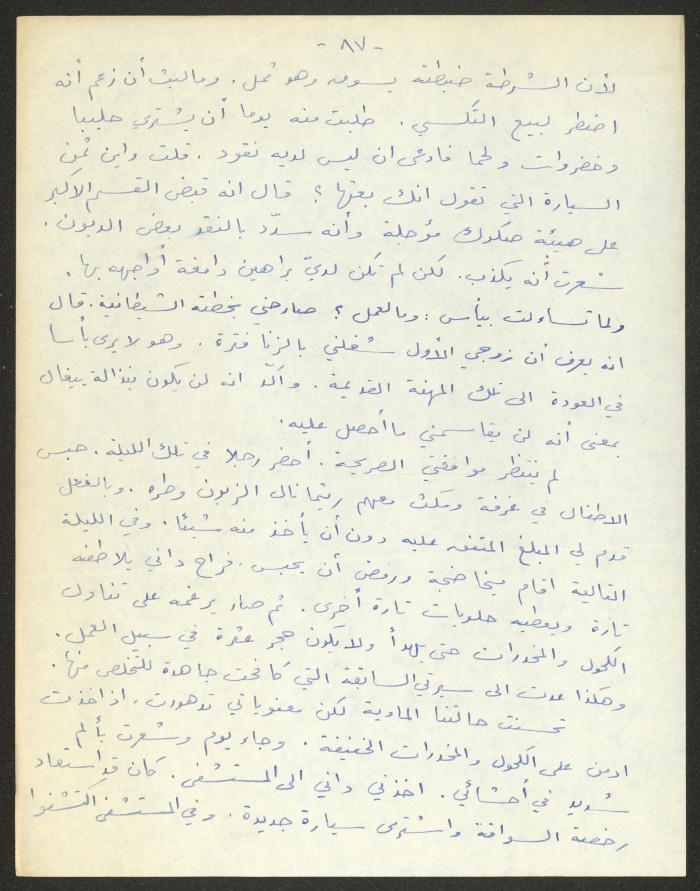 - ٨٧ -
لأن الشرطة ضبطته يسوق وهو ثمل. وما لبث أن زعم أنه
اضطر لبيع التكسي. طلبت منه يوما أن يشتري حليبا
وخضروات ولحما فادعى ان ليس لديه نقود. قلت واين ثمن
السيارة التي تقول انك بعتها؟ قال انه قبض القسم الاكبر
على هيئة صكوك مؤجلة وأنه سدّد بالنقد بعض الديون.
شعرت أنه يكذب. لكن لم تكن لديّ براهين دامغة أواجهه بها.
ولما تساءلت بيأس: وما العمل؟ صارحني بخطته الشيطانية. قال
انه يعرف أن زوجي الأول شغلني بالزنا فترة. وهو لا يرى بأسا
في العودة الى تلك المهنة القديمة. واكّد انه لن يكون بنذالة ييغال
بمعنى أنه لن يقاسمني ما أحصل عليه.
لم ينتظر موافقتي الصريحة. أحضر رجلا في تلك الليلة. حبس
الاطفال في غرفة ومكث معهم ريثما نال الزبون وطره. وبالفعل
قدم لي المبلغ المتفق عليه دون أن يأخذ منه شيئا. وفي الليلة
التالية اقام ميخا ضجة ورفض أن يحبس. فراح داني يلاطفه
تارة ويعطيه حلويات تارة أخرى. ثم صار يرغمه على تناول
الكحول والمخدرات حتى يهدأ ولا يكون حجر عثرة في سبيل العمل.
وهكذا عدت الى سيرتي السابقة التي كافحت جاهدة للتخلص منها.
تحسنت حالتنا المادية لكن معنوياتي تدهورت. اذ اخذت
ادمن على الكحول والمخدرات الخفيفة. وجاء يوم وشعرت بألم
شديد في أحشائي. اخذني داني الى المستشفى. كان قد استعاد
رخصة السواقة واشترى سيارة جديدة. وفي المستشفى اكتشفوا